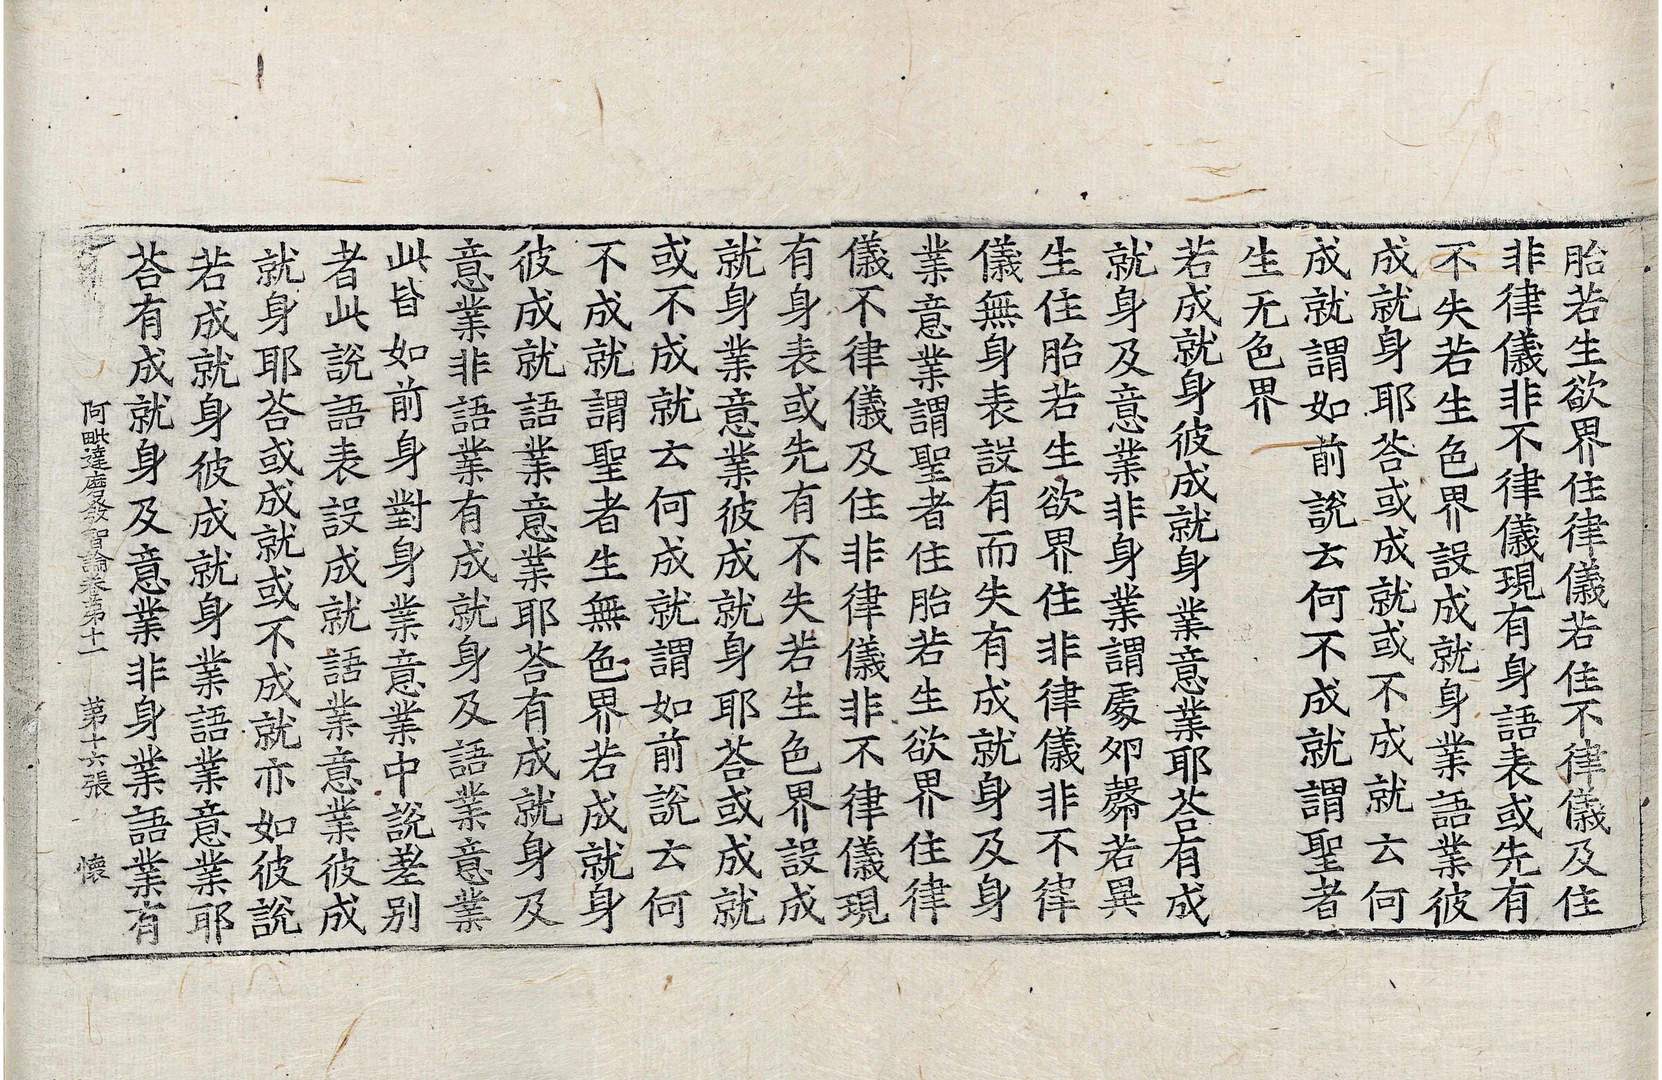 胎若生欲界住律儀若住不律儀及住
非律儀非不律儀現有身語表或先有
不失若生色界設成就身業語業彼
成就身耶荅或成就或不成就云何
成就謂如前說云何不成就謂聖者
生无色界
若成就身彼成就身業意業耶荅有成
就身及意業非身業謂處卵㲉若異
生住胎若生欲界住非律儀非不律
儀無身表設有而失有成就身及身
業意業謂聖者住胎若生欲界住律
儀不律儀及住非律儀非不律儀現
有身表或先有不失若生色界設成
就身業意業彼成就身耶荅或成就
或不成就云何成就謂如前說云何
不成就謂聖者生無色界若成就身
彼成就語業意業耶荅有成就身及
意業非語業有成就身及語業意業
此皆如前身對身業意業中說差别
者此說語表設成就語業意業彼成
就身耶荅或成就或不成就亦如彼說
若成就身彼成就身業語業意業耶
荅有成就身及意業非身業語業有
阿毗達磨發智論卷第十一　第十六張　懷